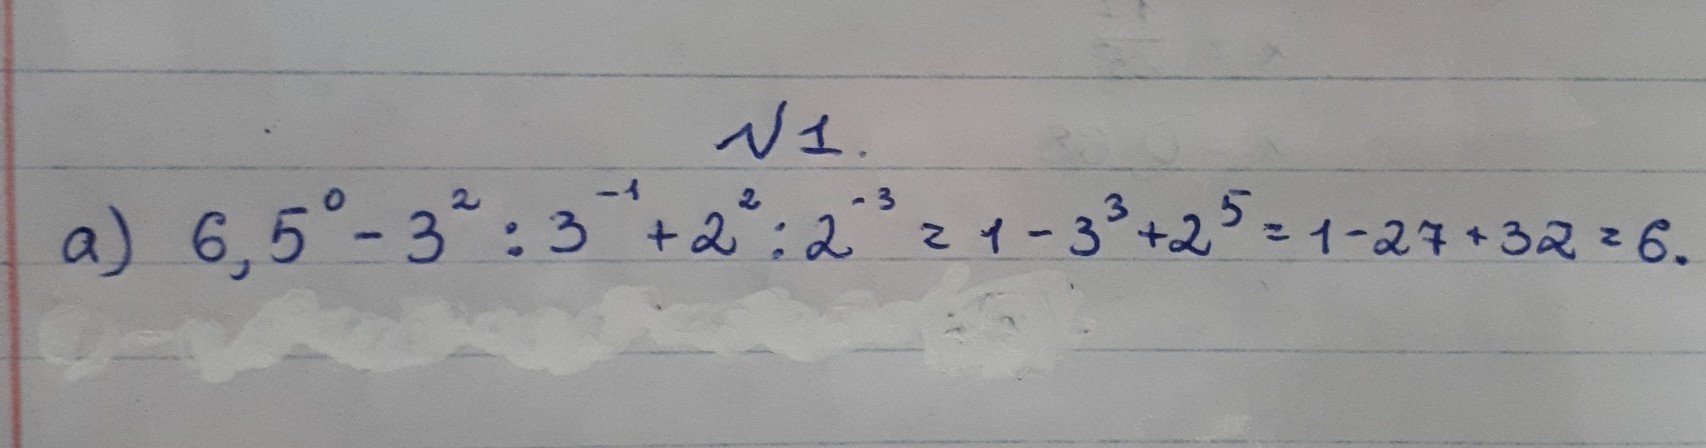 №1.
а) 6,5⁰ - 3² : 3⁻¹ + 2² : 2⁻³ = 1 - 3³ + 2⁵ = 1 - 27 + 32 = 6.